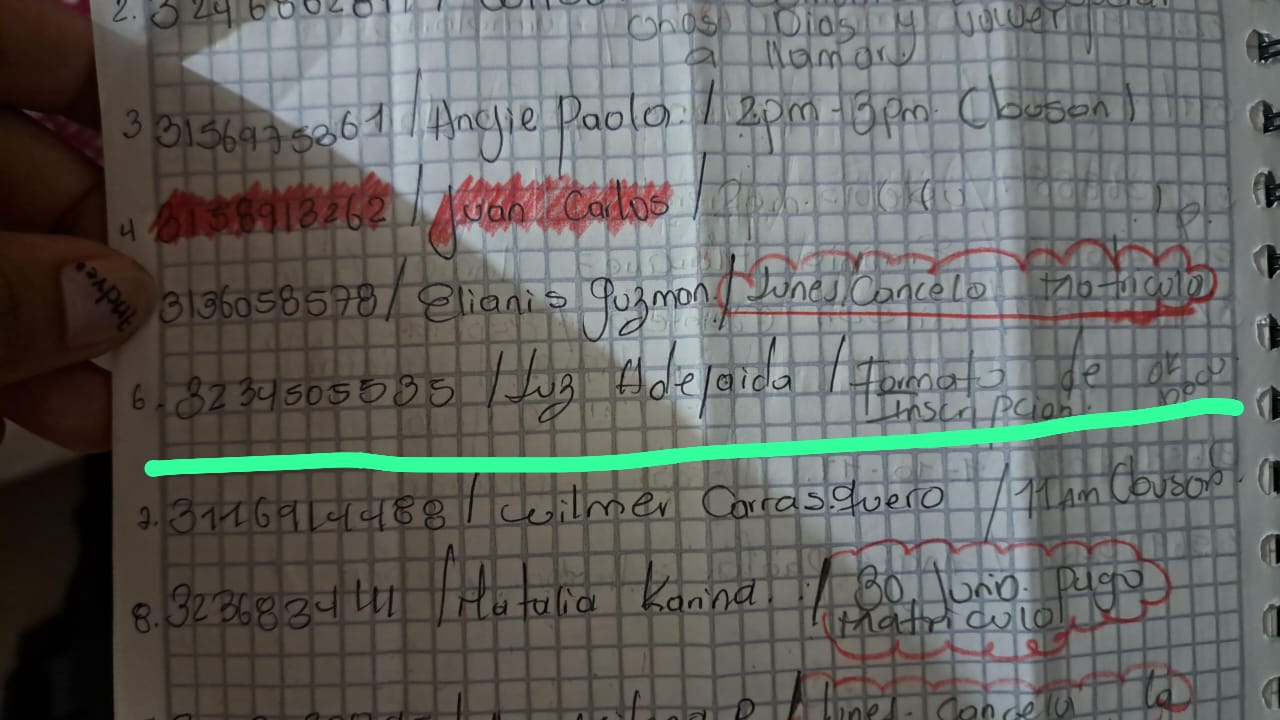 chas Dios y volver
a llamar
3 3156975361 / Angie Paola. / 2pm - 3pm. (buson)
4 3158913262 / Juan Carlos /
3136058578 / Elianis guzman / Lunes Cancela matricula
6. 3234505535 / Luz Adelaida / formato de
Inscripcion.
7. 3116914488 / Wilmer Carrasquero / 11Am (buson
8. 323683444 / Natalia Karina. / 30 Junio. pago
matricula
Lunes. Cancela la